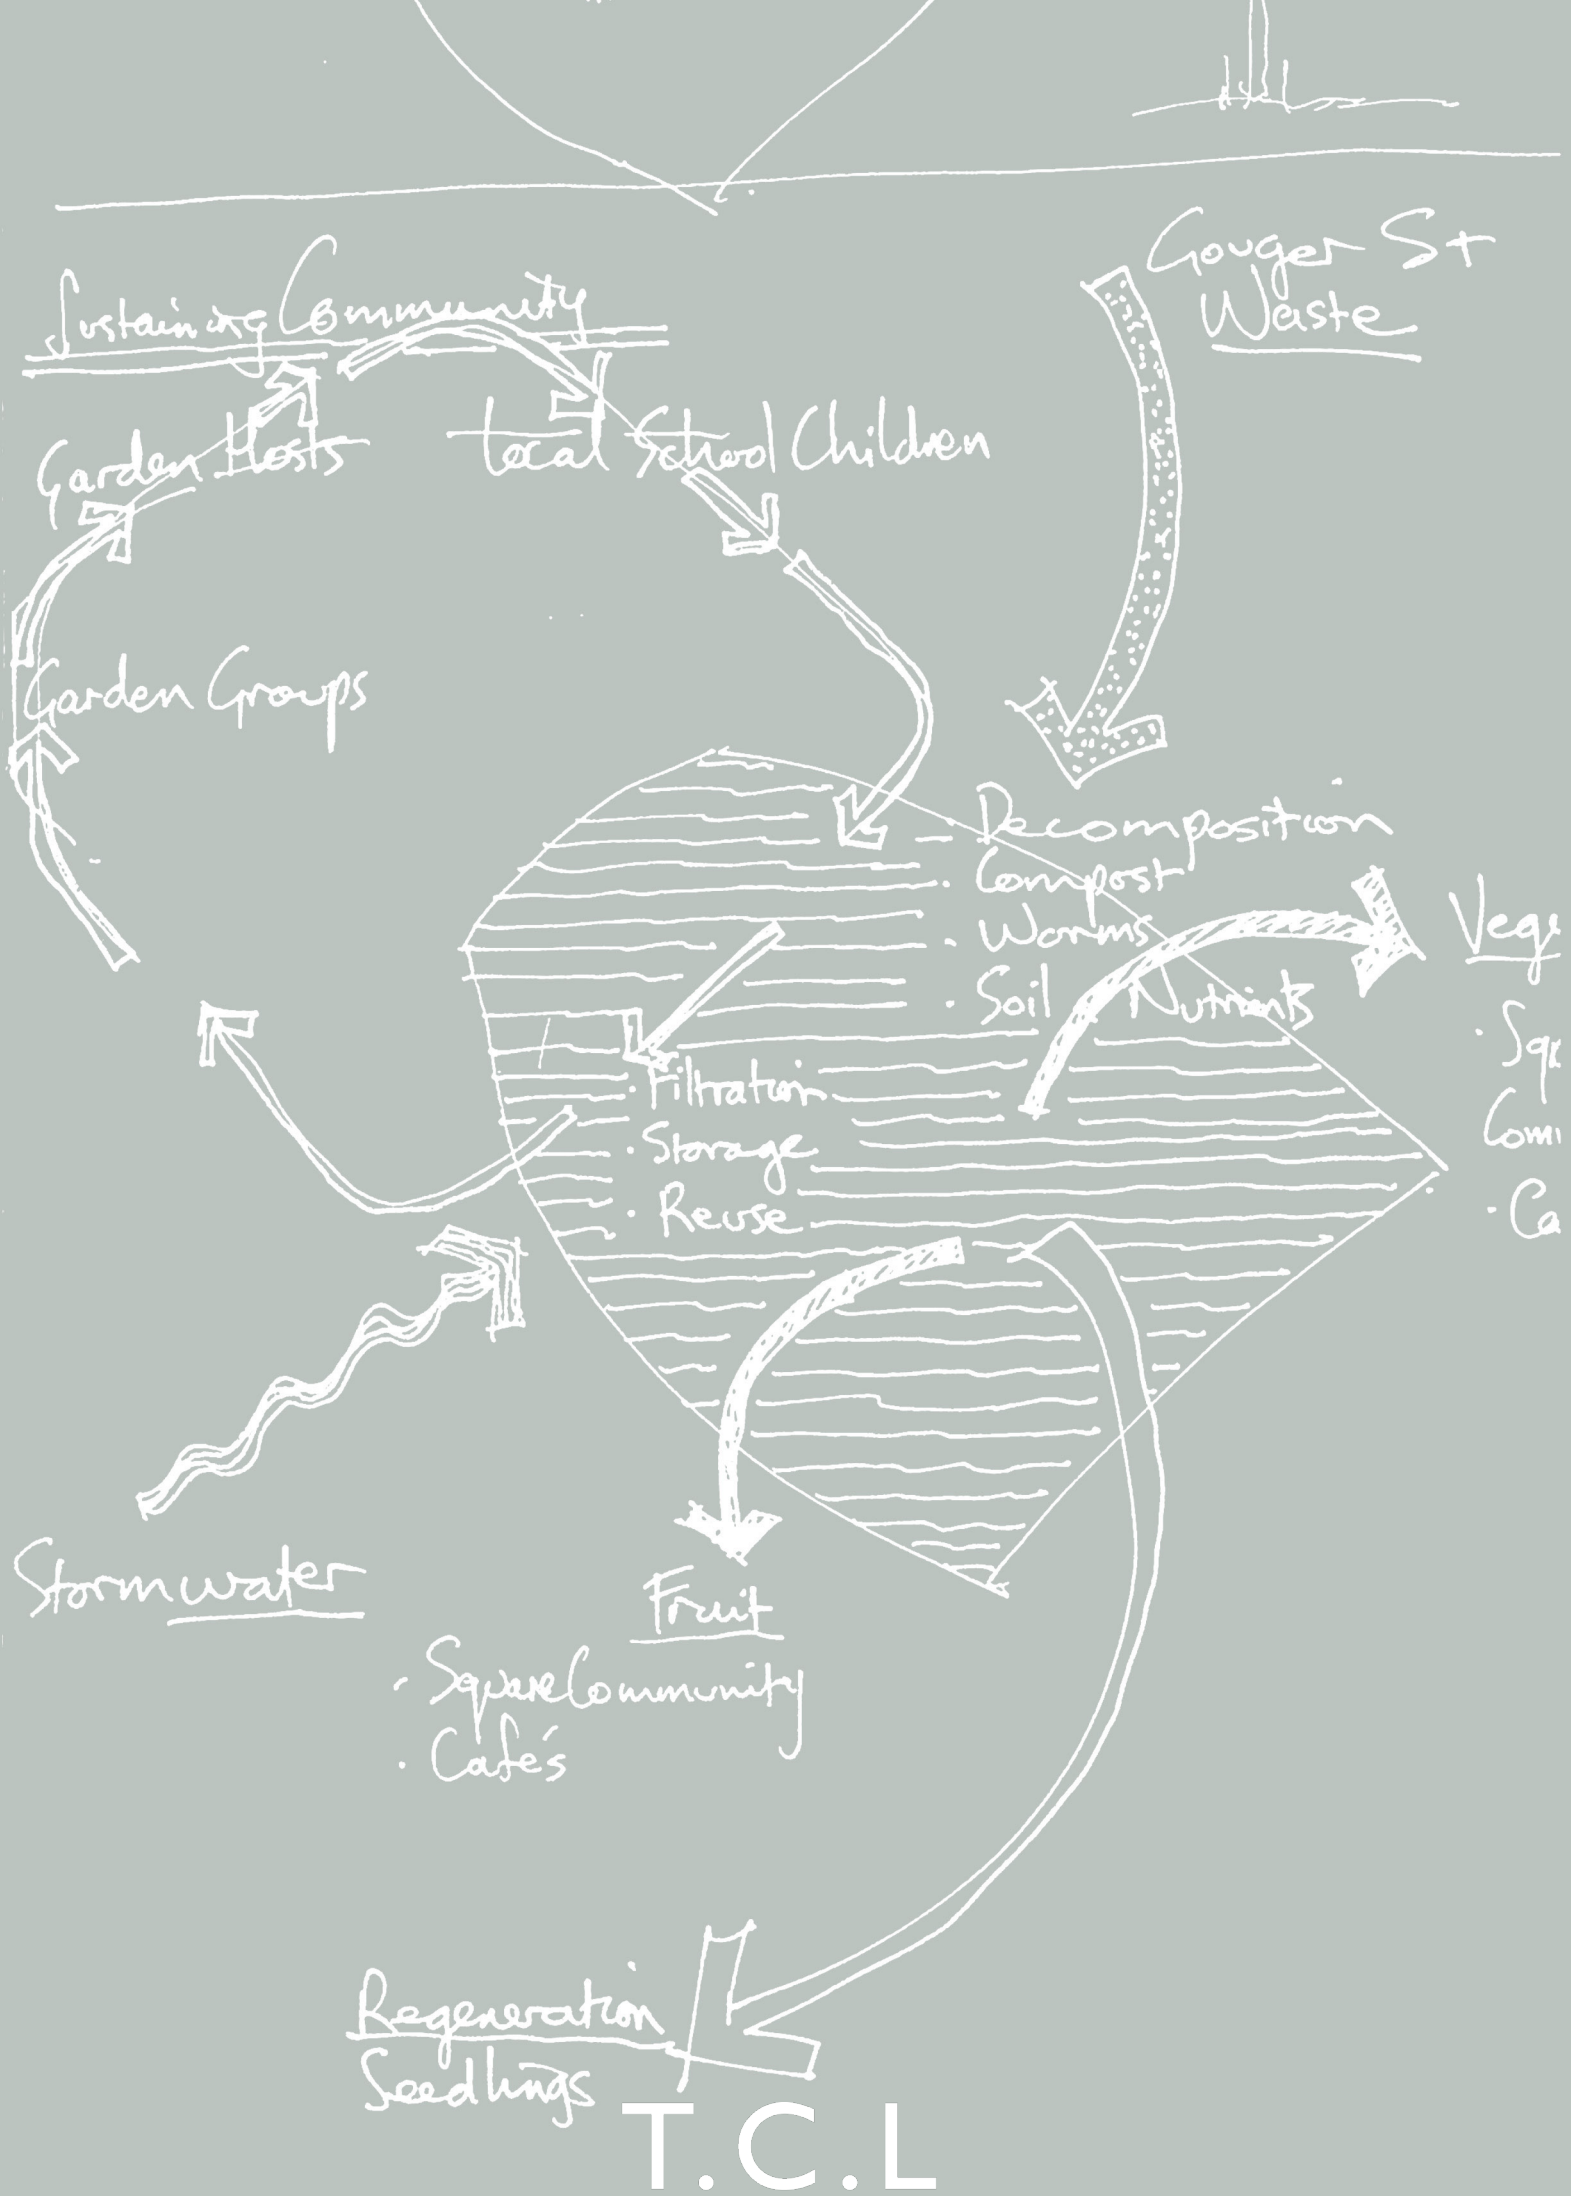 Gouger St
Waste
Sustaining Community
Garden Hosts
Local School Children
Garden Groups
Decomposition
· Compost
· Worms
· Soil Nutrients
· Filtration
· Storage
· Reuse
Stormwater
Fruit
· Square Community
· Cafe's
Regeneration
Seedlings
T.C.L